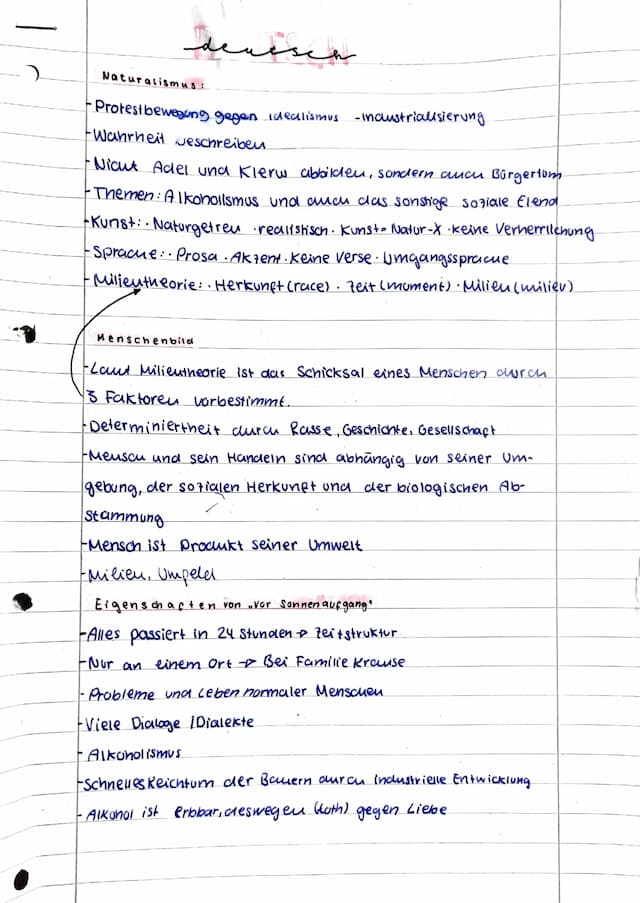 deutsch
Naturalismus:
-Protestbewegung gegen Idealismus -Industrialisierung
-Wahrheit beschreiben
-Nicht Adel und Klerus abbilden, sondern auch Bürgertum
-Themen: Alkoholismus und auch das sonstige soziale Elend
-Kunst: · Naturgetreu · realistisch · Kunst = Natur - X · keine Verherrlichung
-Sprache: · Prosa · Akzent · Keine Verse · Umgangssprache
-Milieutheorie: · Herkunft (race) · Zeit (moment) · Milieu (milieu)
Menschenbild
-Laut Milieutheorie ist das Schicksal eines Menschen durch
3 Faktoren vorbestimmt.
-Determiniertheit durch Rasse, Geschichte, Gesellschaft
-Mensch und sein Handeln sind abhängig von seiner Um-
gebung, der sozialen Herkunft und der biologischen Ab-
stammung
-Mensch ist Produkt seiner Umwelt
-Milieu, Umfeld
Eigenschaften von „Vor Sonnenaufgang"
-Alles passiert in 24 Stunden → Zeitstruktur
-Nur an einem Ort → Bei Familie Krause
-Probleme und Leben normaler Menschen
-Viele Dialoge / Dialekte
-Alkoholismus
-Schnelles Reichtum der Bauern durch industrielle Entwicklung
-Alkohol ist erbbar, deswegen (Loth) gegen Liebe